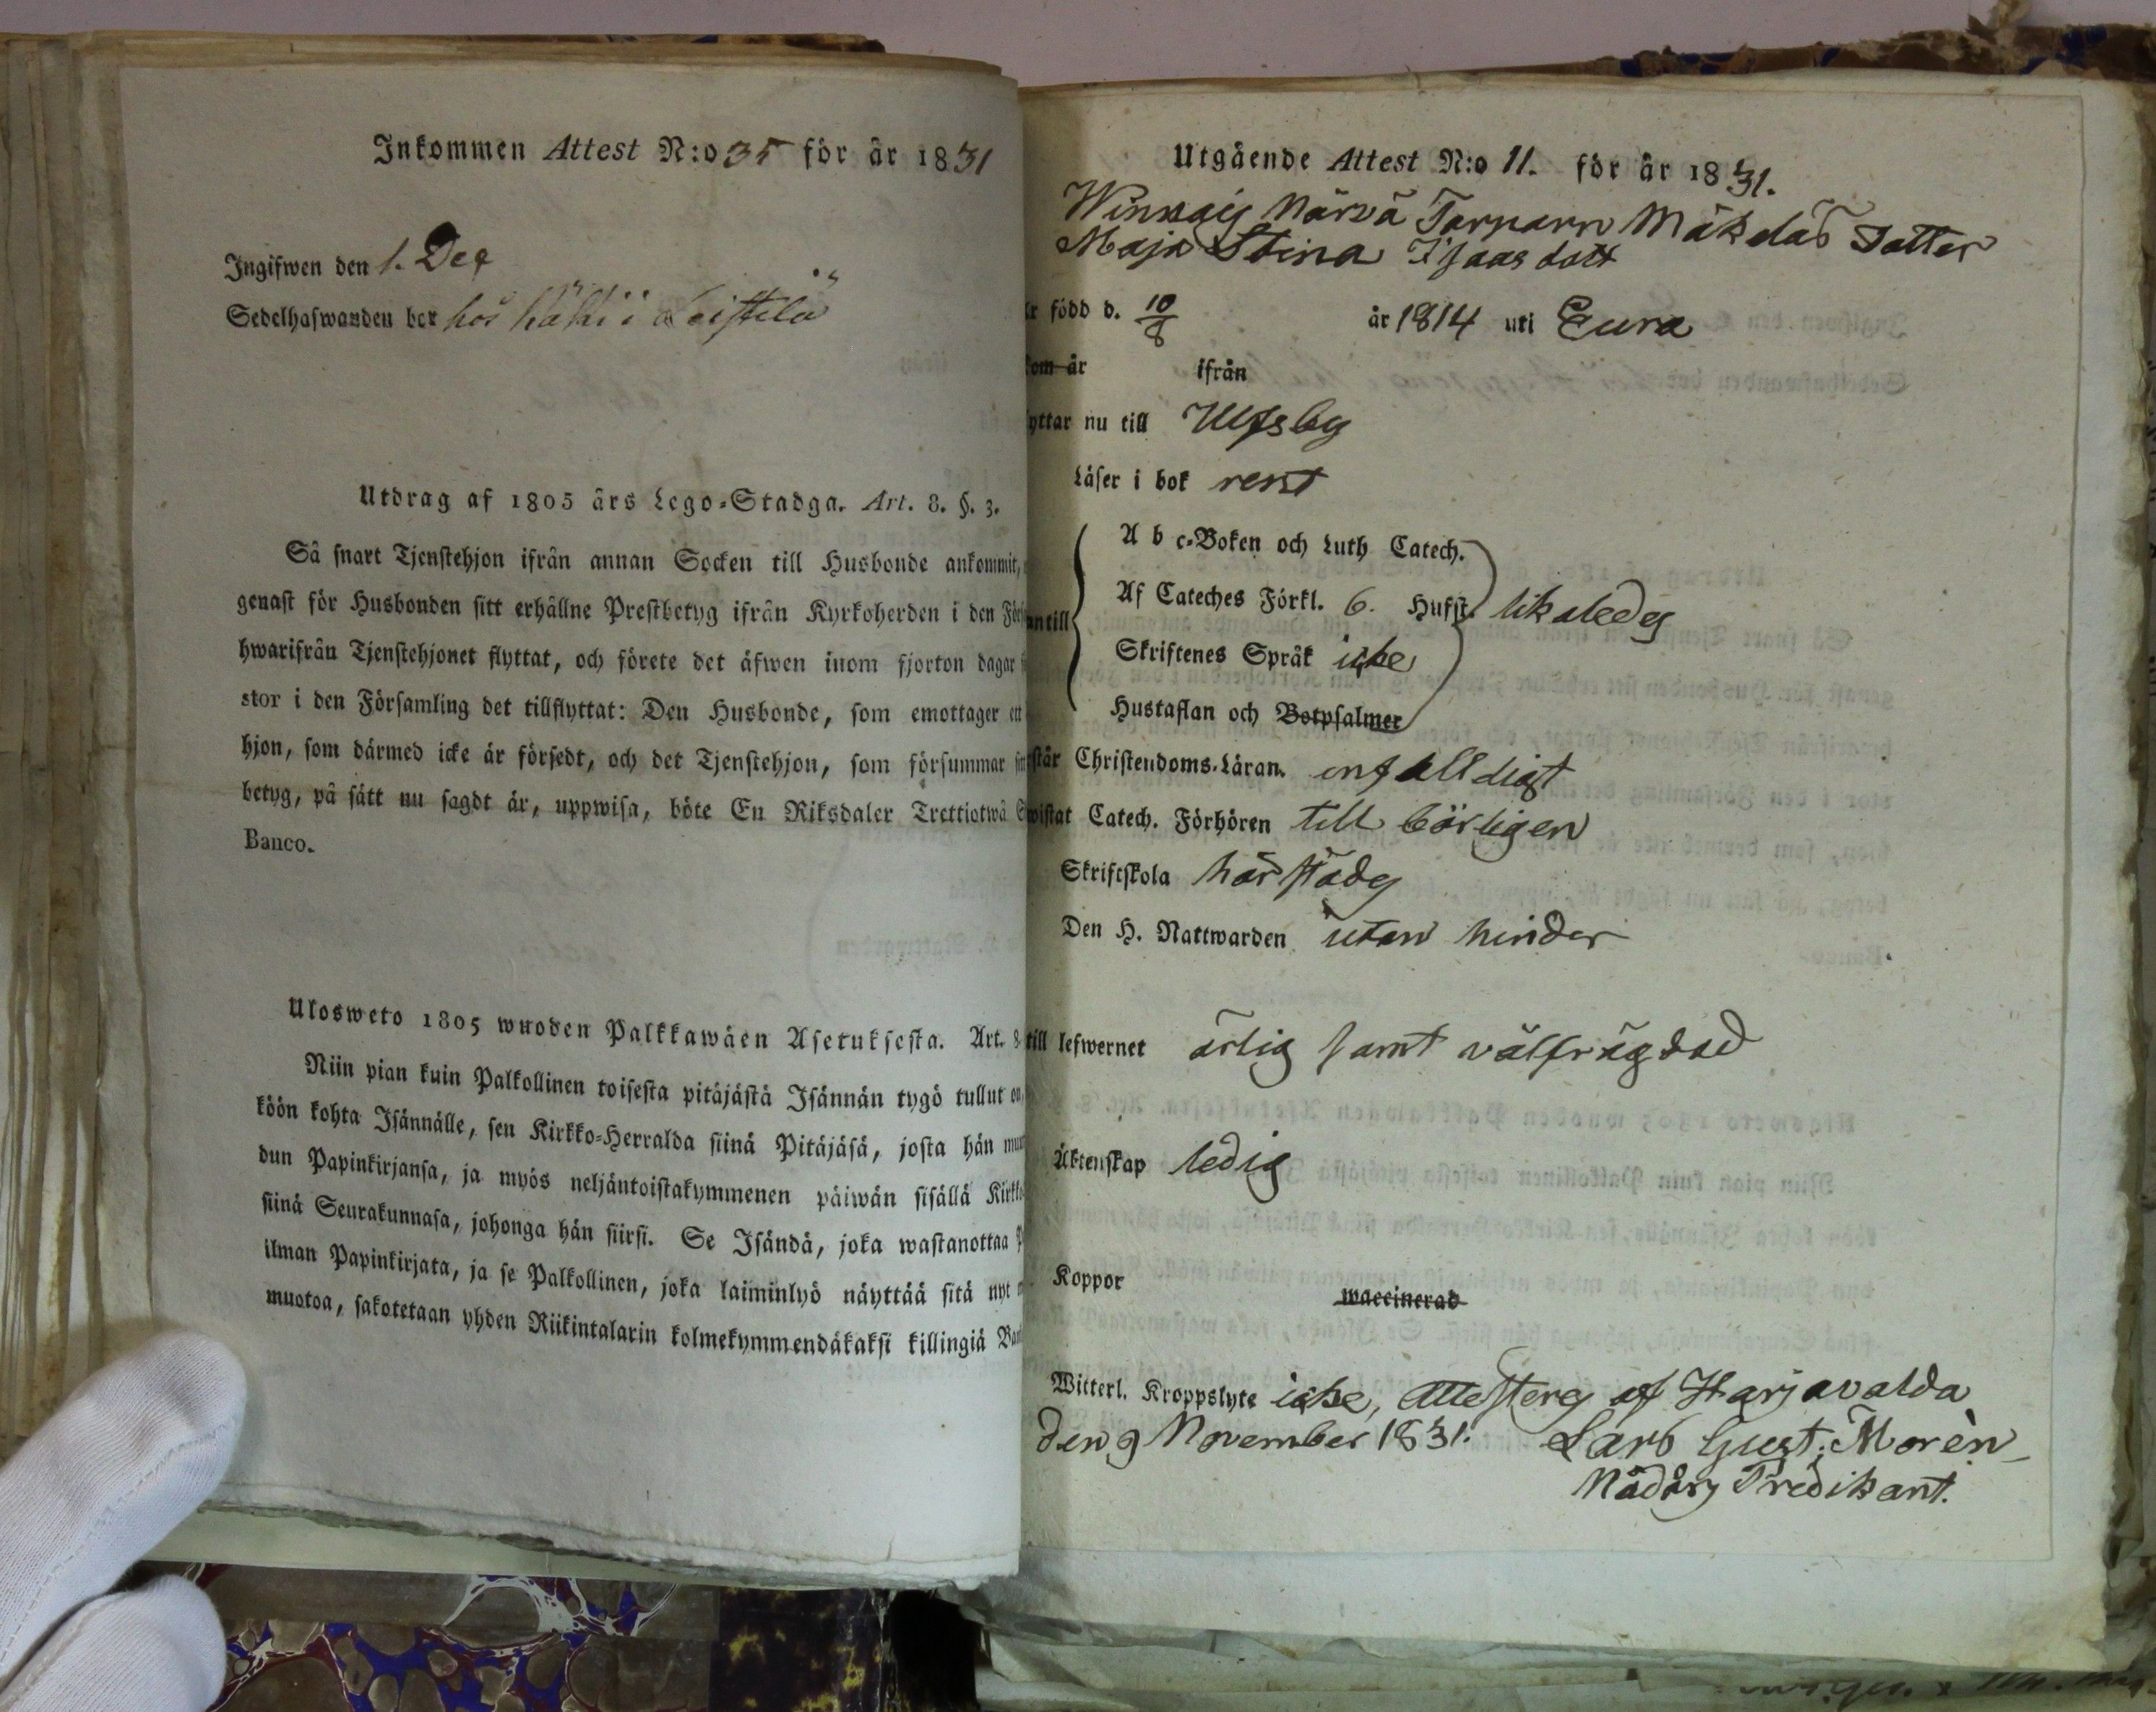 Inkommen Attest N:o 35 för år 1831
Ingifwen den 1. Dec
Sedelhafwanden bor hos i
Utdrag af 1805 års Lego-Stadga. Art. 8. §. 3.
Så snart Tjenstehjon ifrån annan Socken till Husbonde ankommit,
genast för Husbonden sitt erhållne Prestbetyg ifrån Kyrkoherden i den
hwarifrån Tjenstehjonet flyttat, och förete det äfwen inom fjorton dagar
stor i den Församling det tillflyttat: Den Husbonde, som emottager ett
hjon, som därmed icke är försedt, och det Tjenstehjon, som försummar
betyg, på sätt nu sagdt är, uppwisa, böte En Riksdaler Trettiotwå
Banco.
Ulosweto 1805 wuoden Palkkawäen Asetuksesta. Art. 8
Niin pian kuin Palkollinen toisesta pitäjästä Isännän tygö tullut on,
köön kohta Isännälle, sen Kirkko-Herralda siinä Pitäjäsä, josta hän
dun Papinkirjansa, ja myös neljäntoistakymmenen päiwän sisällä
siinä Seurakunnasa, johonga hän siirsi. Se Isändä, joka wastanottaa
ilman Papinkirjata, ja se Palkollinen, joka laiminlyö näyttää sitä nyt
muotoa, sakotetaan yhden Riikintalarin kolmekymmendäkaksi killingiä
Utgående Attest N:o 11. för år 1831.
Närvä Torparn Mäkeläs Dotter
Maja Stina Isaas dott
född d. 10/8 år 1814 uti Eura
om år ifrån
yttar nu till Ulfsby
Läser i bok rent
A b c-Boken och Luth Catech.
Af Cateches Förkl. 6. Hufst. likaledes
antill
Skriftenes Språk icke
Hustaflan och Botpsalmer
står Christendoms-Läran. enfalldigt
wistat Catech. Förhören till börligen
Skriftskola härstädes
Den H. Nattwarden utan hinder
till lefwernet ärlig samt välfrägdad
Äktenskap ledig
Koppor waccinerad
Witterl. Kroppslyte icke, attesteras af Harjavalda
den 9 November 1831. Lars Gust: Morèn
Nådårs Predikant.